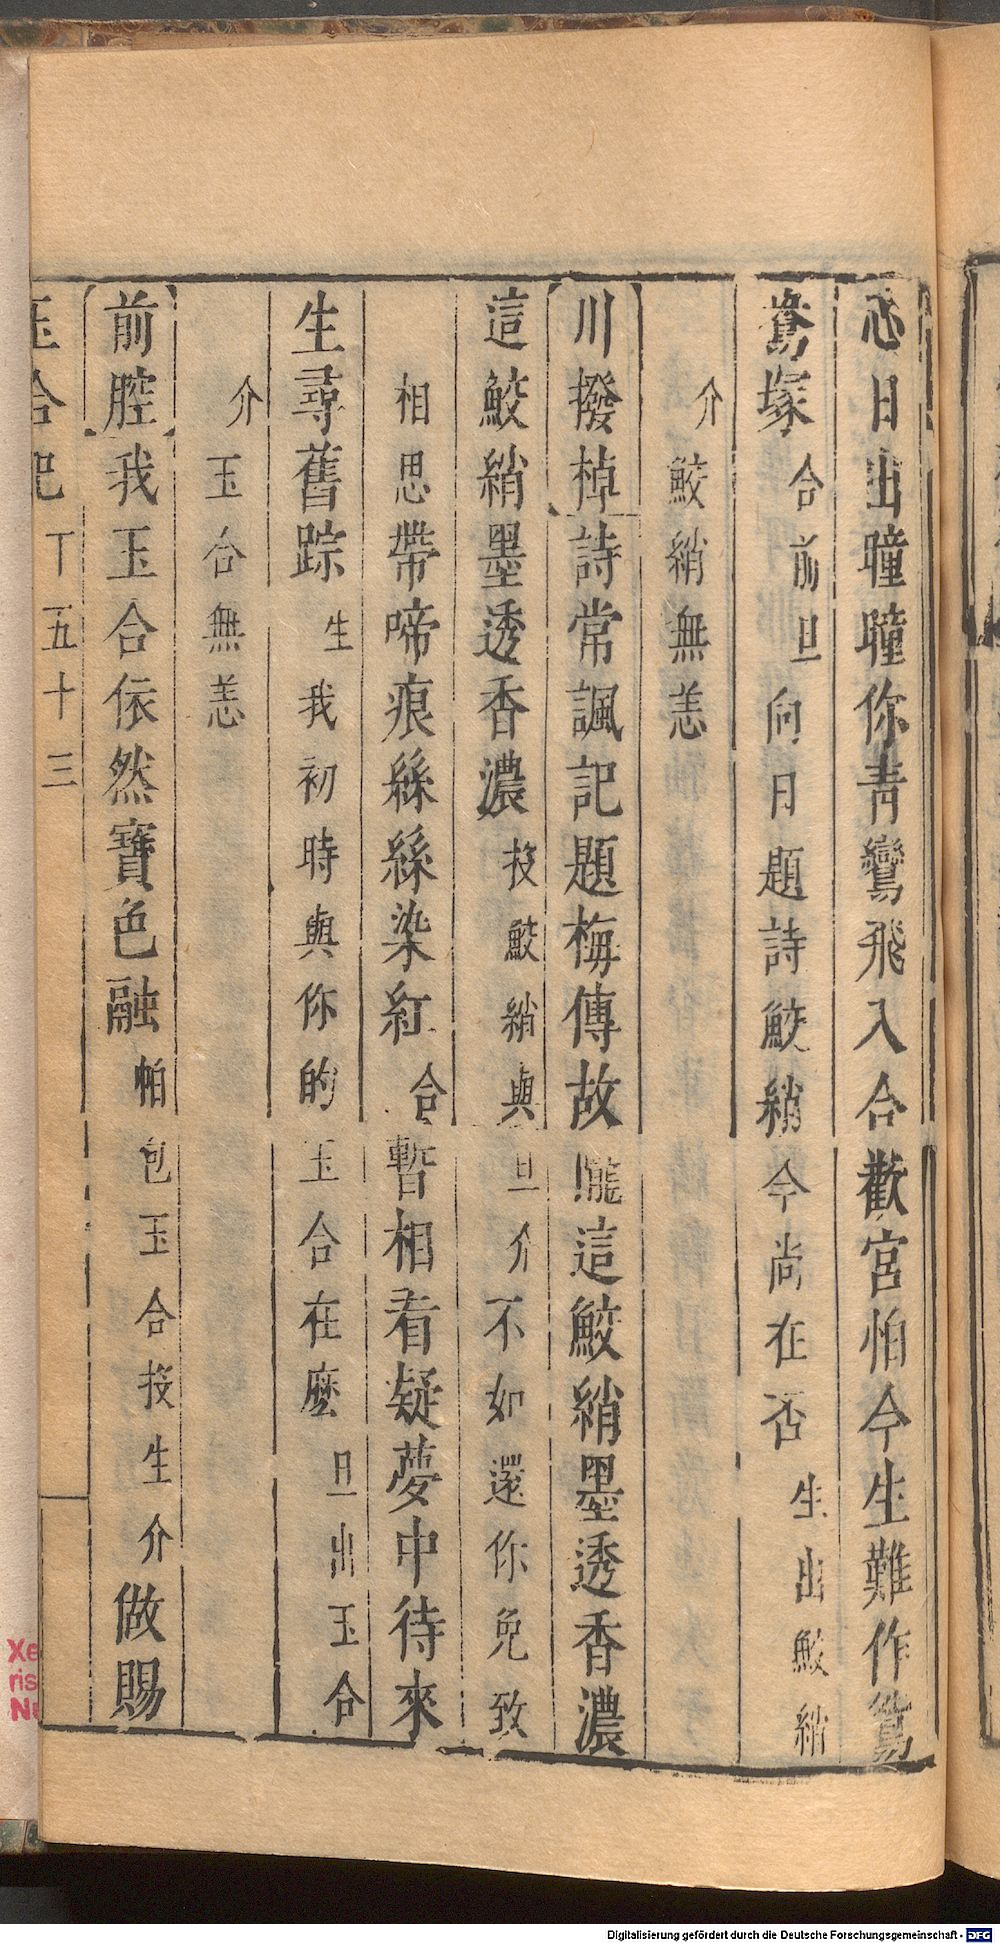 忘日出曈曈你青鸞飛入合歡宮怕今生難作鴛
鴦塚合前旦向日題詩鮫綃今尚在否生出鮫綃
介鮫綃無恙
川撥棹詩常諷記題梅傳故隴這鮫綃墨透香濃
這鮫綃墨透香濃投鮫綃與旦介不如還你免致
相思帶啼痕絲絲染紅合暫相看疑夢中待來
生尋舊踪生我初時與你的玉合在麽旦出玉合
介玉合無恙
前腔我玉合依然寶色融帕包玉合投生介做賜
玉合記 丁 五十三
Xe
ris
Nu
Digitalisierung gefördert durch die Deutsche Forschungsgemeinschaft - DFG